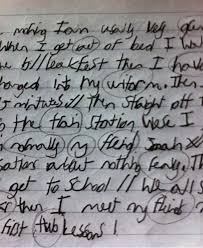 morning I am usually very
When I get out of bed I
breakfast then I have
changed into my uniform. Then
15 minitutes // then straight off t
the train station were I
normally my friend
about nothing really. Th
get to school // We all s
then I meet my friends
first two lessons!